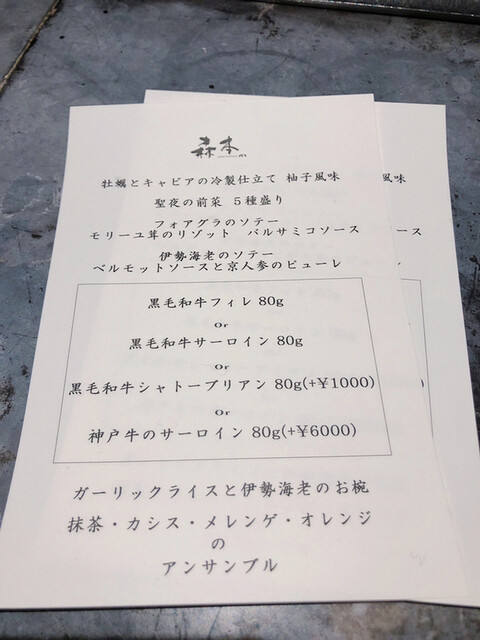 森本
牡蠣とキャビアの冷製仕立て 柚子風味
風味
聖夜の前菜 5種盛り
フォアグラのソテー
モリーユ茸のリゾット バルサミコソース
ース
伊勢海老のソテー
ベルモットソースと京人参のピューレ
黒毛和牛フィレ 80g
or
黒毛和牛サーロイン 80g
or
黒毛和牛シャトーブリアン 80g(+¥1000)
or
神戸牛のサーロイン 80g(+¥6000)
ガーリックライスと伊勢海老のお椀
抹茶・カシス・メレンゲ・オレンジ
の
アンサンブル